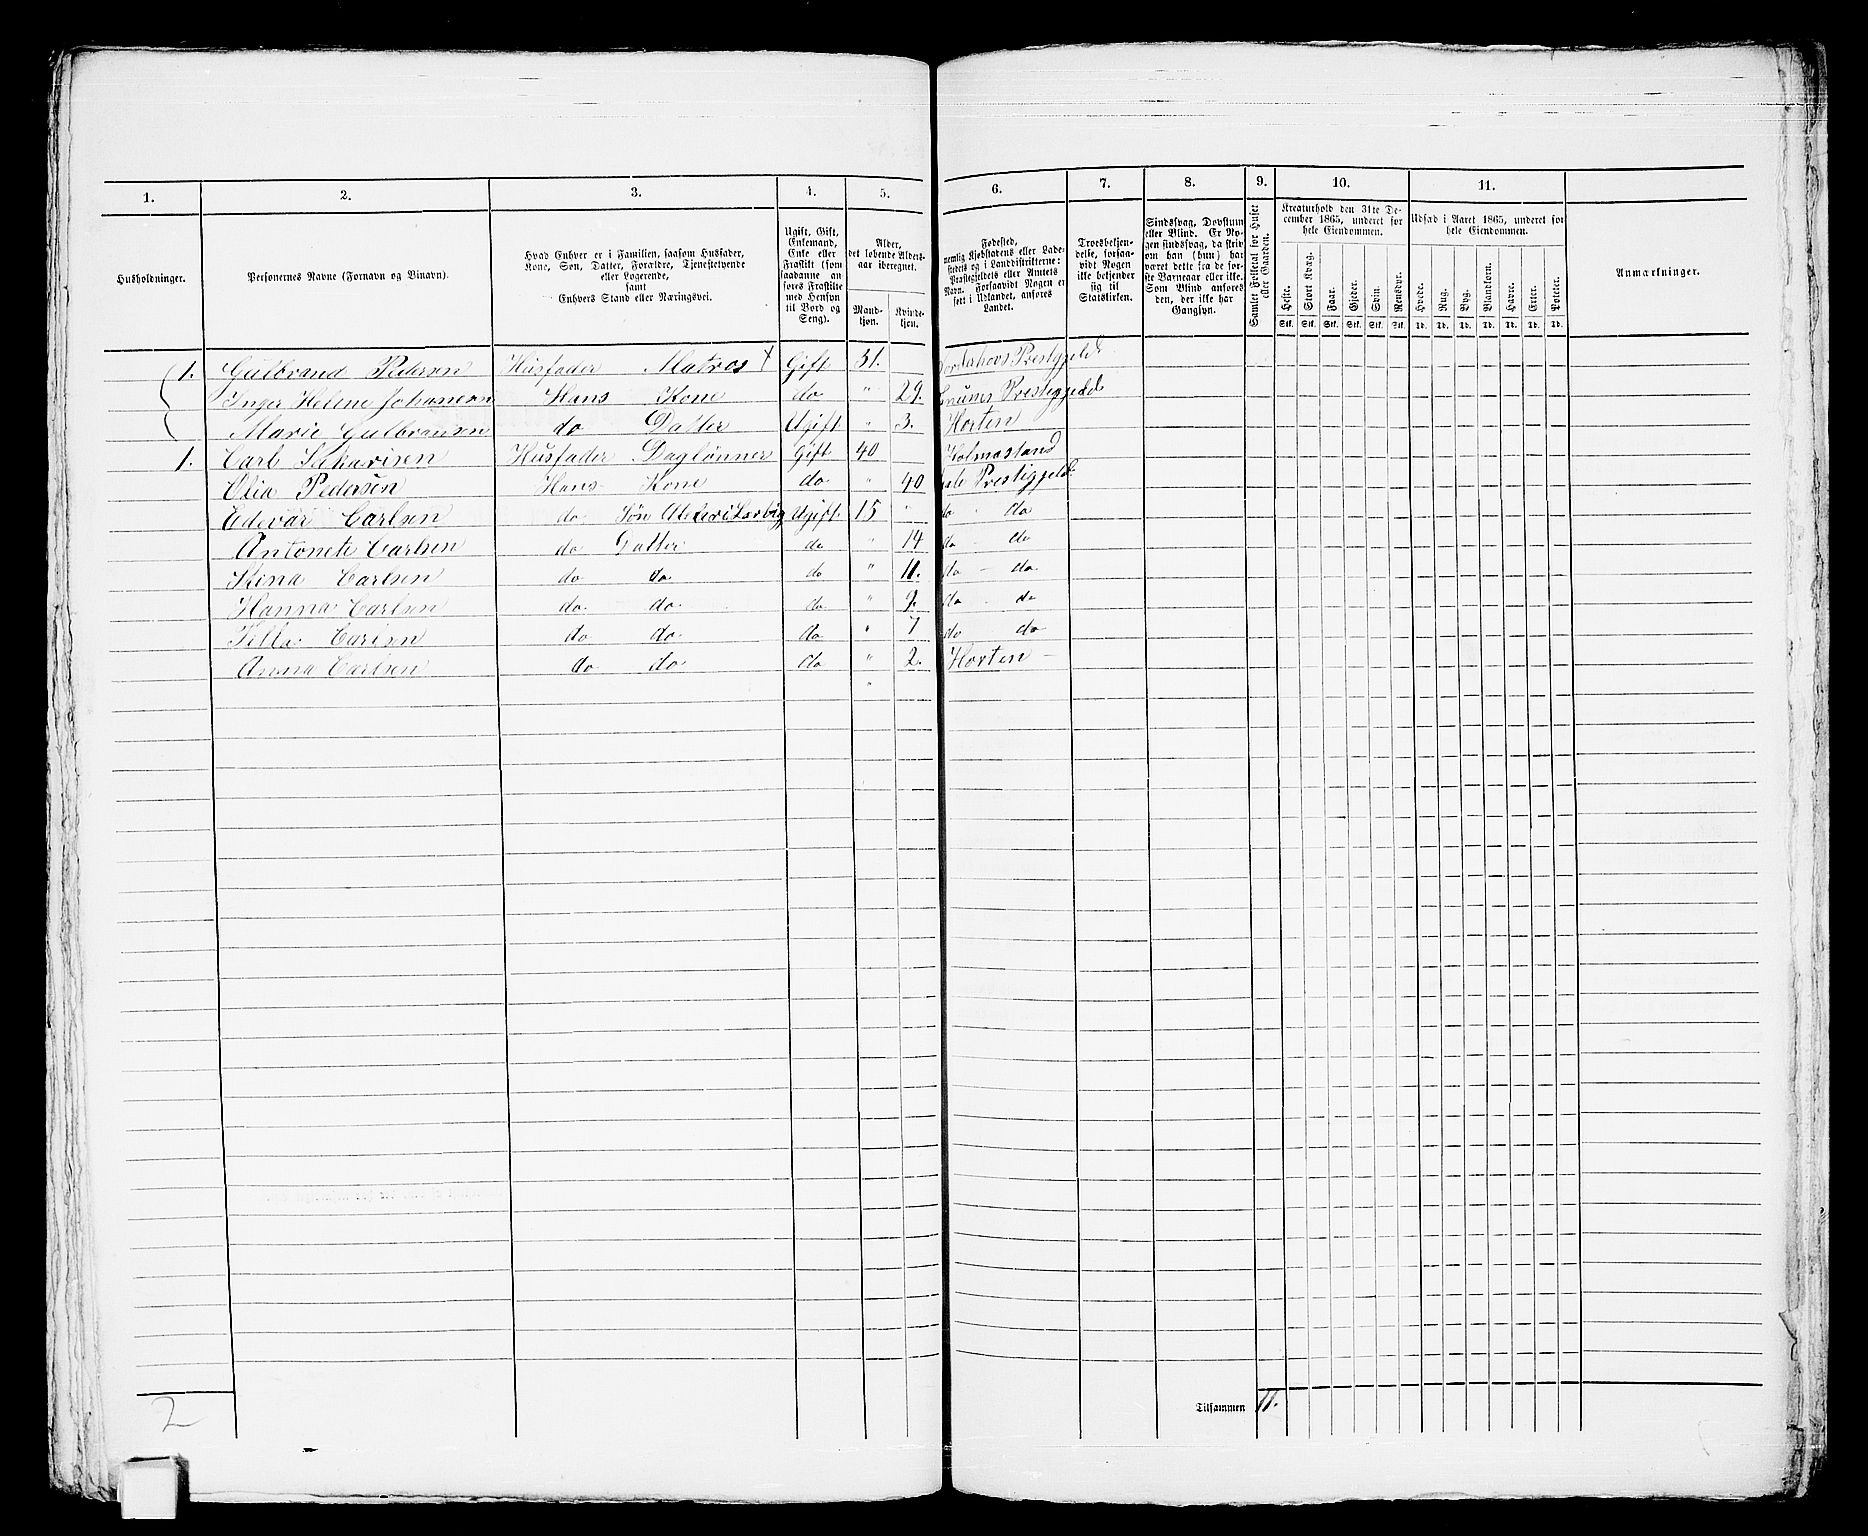 1. 2. 3. 4. 5. 6. 7. 8. 9. 10. 11.
Husholdninger.
Personernes Navne (Fornavn og Tilnavn).
Hvad Enhver er i Familien, saasom Husfader,
Kone, Søn, Datter, Forældre, Tjenestetyende
eller Logerende,
samt
Enhvers Stand eller Næringsvei.
Ugift, Gift,
Enkemand,
Enke eller
Fraskilt (som
saadanne an
føres Fraskilte
med Hensyn
til Bord og
Seng).
Alder,
det løbende Alders-
aar iberegnet.
Mand-
kjøn.
Kvinde-
kjøn.
Fødested,
nemlig Kjøbstadens eller Lade-
stedets og i Landdistrikterne:
Præstegjeldets eller Amtets
Navn. Forsaavidt Nogen er
født i Udlandet, anføres
Landet.
Troesbekjen-
delse, forsaa-
vidt Nogen
ikke bekjender
sig til
Statskirken.
Sindssvag, Døvstum
eller Blind. Er No-
gen sindssvag, da skriv
om han (hun) har
været dette fra de før-
ste Barneaar eller ikke.
Som Blind anføres
den, der ikke har
Gangsyn.
Samlet Folketal for Huset
eller Gaarden.
Kreaturhold den 31te De-
cember 1865, underet for
hele Eiendommen.
Heste. Stort Kvæg. Faar. Gjeder. Svin. Rensdyr.
Stk. Stk. Stk. Stk. Stk. Stk.
Udsæd i Aaret 1865, underet for
hele Eiendommen.
Hvede. Rug. Byg. Blandkorn. Havre. Erter. Poteter.
Td. Td. Td. Td. Td. Td. Td.
Anmærkninger.
1. Gulbrand Pedersen Husfader Matros + Gift 31. Prestgjeld
Inger Helene Johansen Hans Kone do " 29. Prestegjeld
Marie Gulbransen do Datter Ugift " 3. Horten
1. Carl Sakarisen Husfader Daglønner Gift 40 Holmestrand
Olia Pedersen Hans Kone do " 40 Prestegjeld
Edevar Carlsen do Søn Ugift 15 " do do
Antonete Carlsen do Datter do " 14 do do
Stina Carlsen do do do " 11. do - do
Hanna Carlsen do do do " 9. do do
Carlsen do do do " 7 do do
Anna Carlsen do do do " 2. Horten -
"
Tilsammen 11.
2